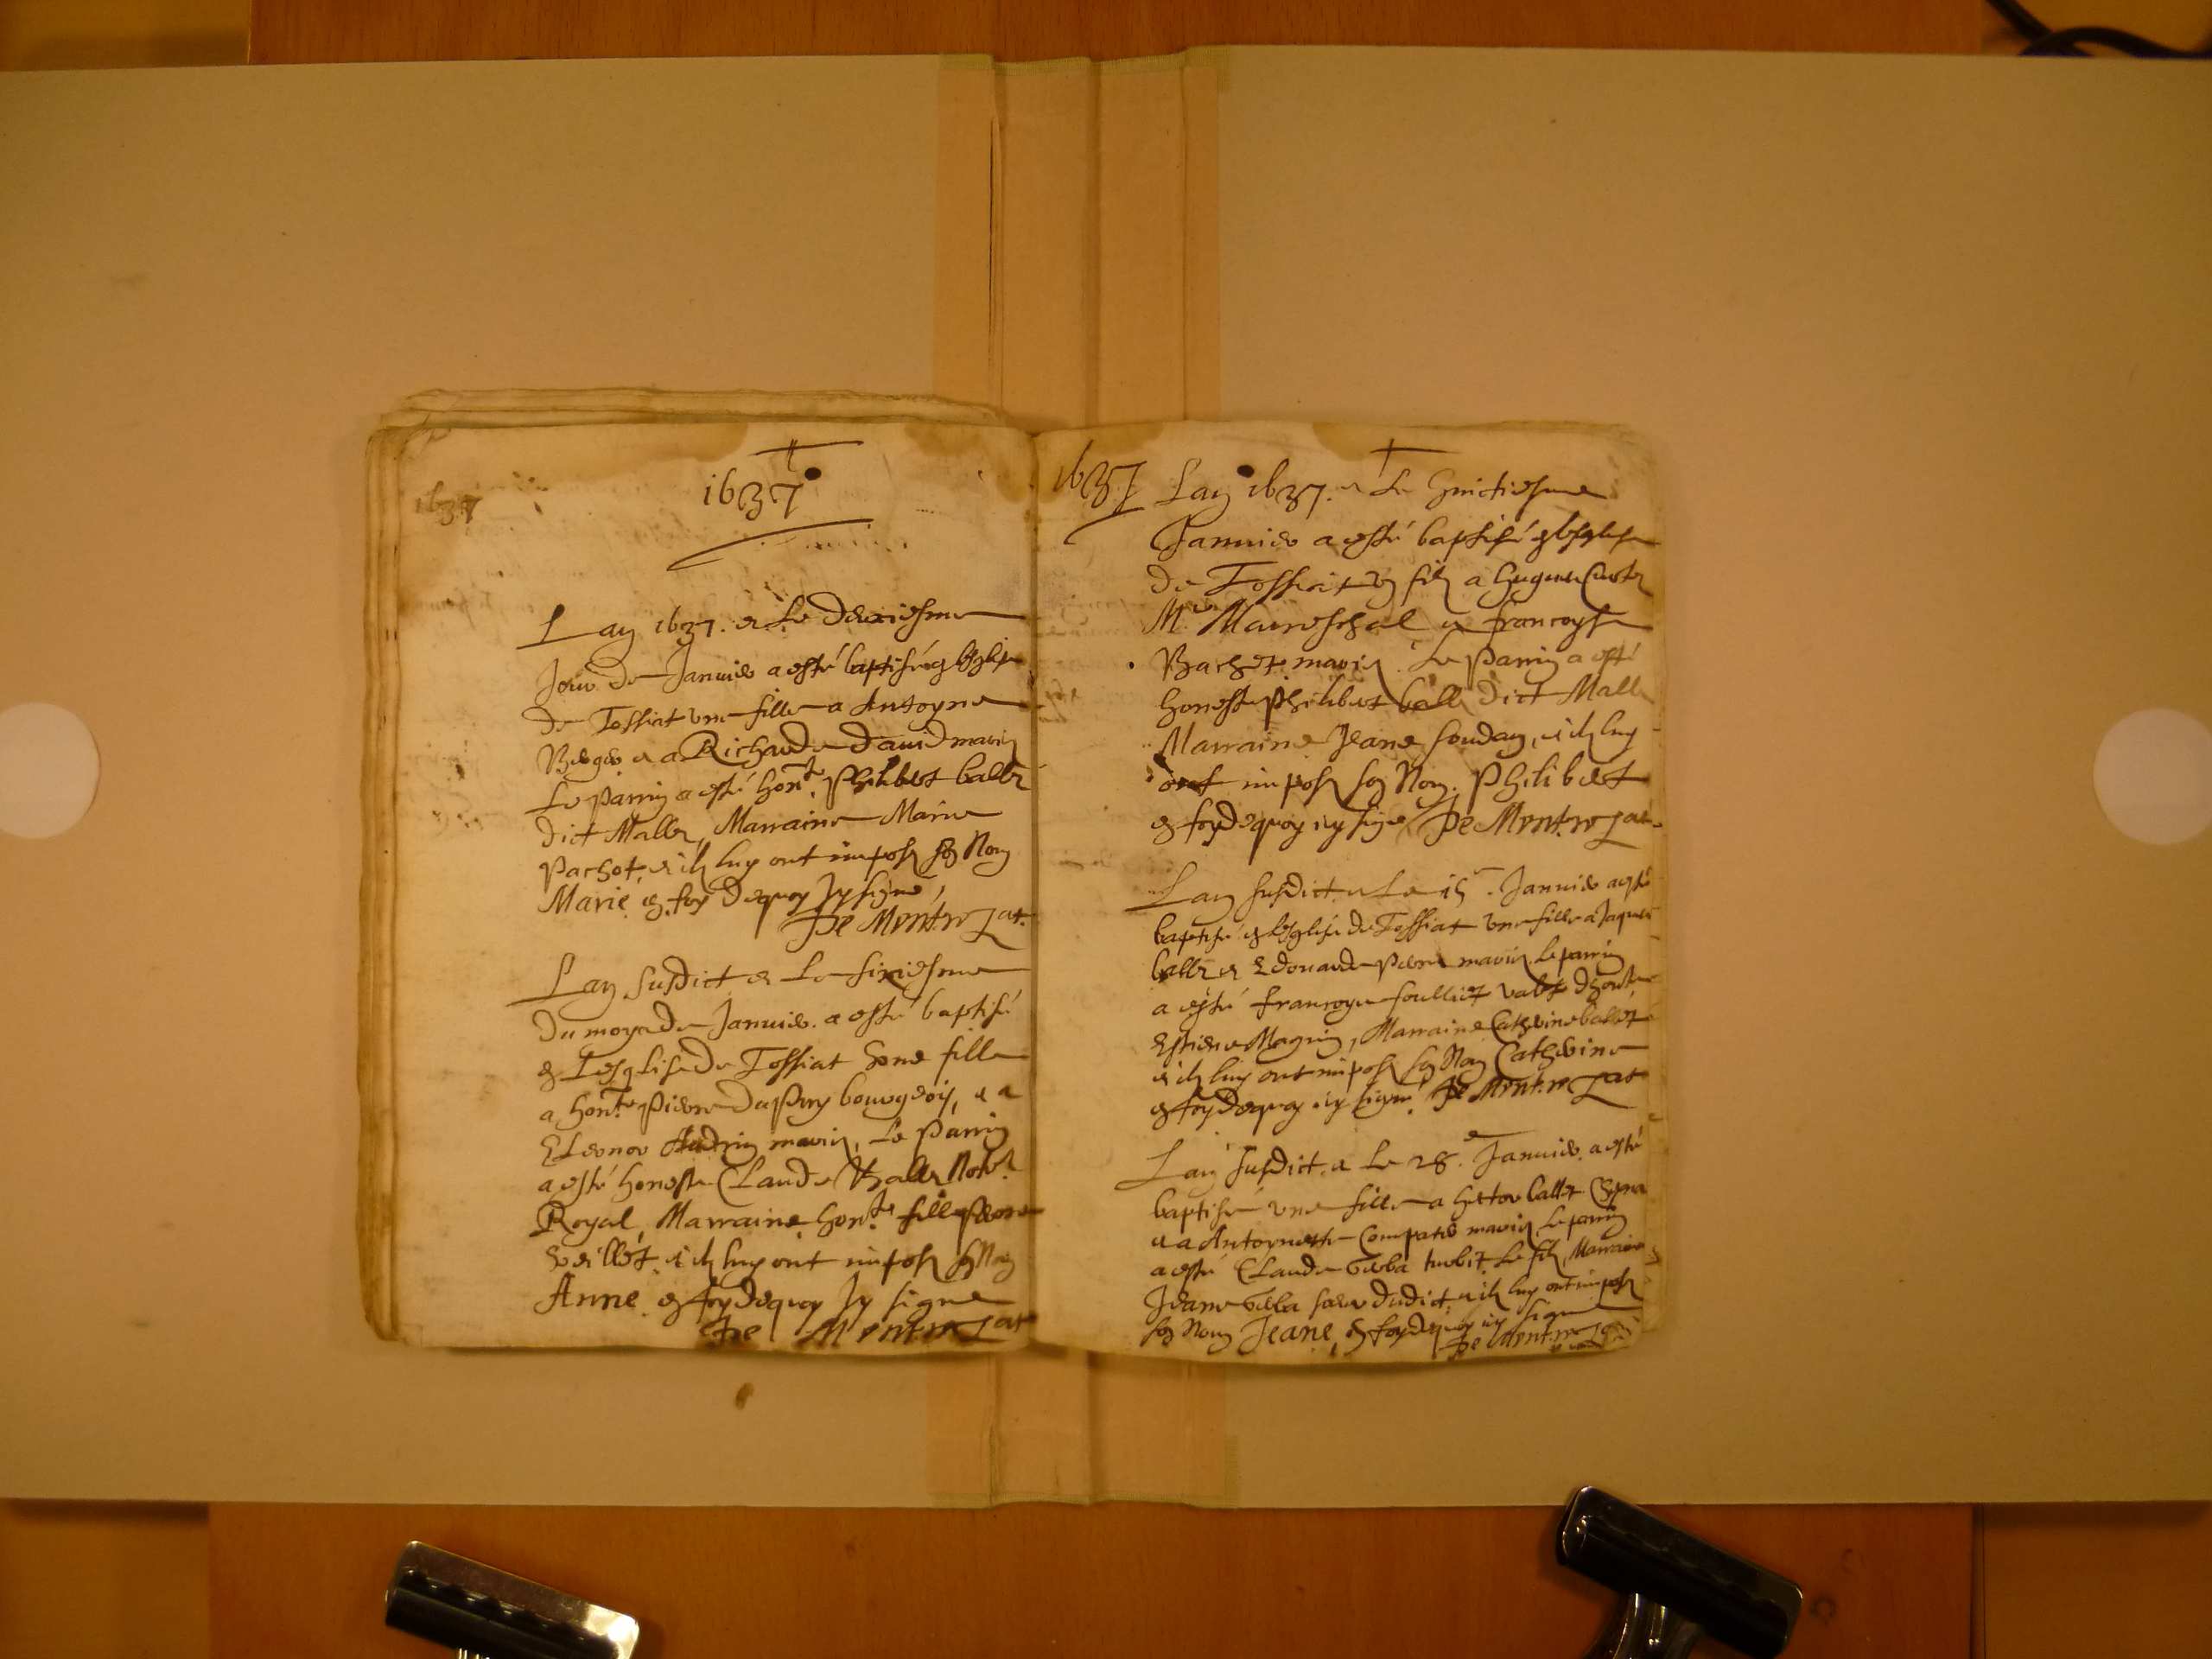 1637
1637
Lan 1637. et Le deuxiesme
Jour de Januier a esté baptiséé en lesglise
de Tossiat vne fille a Antoyne
Berger et a Richarde Dauid mariez
Le Parrin a esté hon.te Philibert ballet
dict Mallet, Marraine Marie
Pachot, et ilz luy ont imposé son Nom
Marie, en foy dequoy Jy signe,
De Montrozat.
Lan susdict et Le sixiesme
du moys de Januier. a esté baptisé
en Lesglise de Tossiat vne fille
a hon.te Pierre Dupuy bourgeois, et a
Eleonor mariez, Le Parrin
a esté honeste Claude Ballet
Royal, Marraine hon.te fille
et ilz luy ont imposé son Nom
Anne en foy dequoy Jy signe
De Montrozat
1637
Lan 1637. et Le huictiesme
Januier a esté baptisé en lesglise
de Tossiat vn filz a Hugues
M.re Mareschal et francoyse
Bachet mariez. Le Parrin a esté
honeste Philibert ballet dict Mallet
Marraine Jeane soudan, et ilz luy
ont imposé son Nom. Philibert
en foy dequoy iy signe De Montrozat
Lan susdict et Le 15.e Januier a esté
baptisé en lesglise de Tossiat vne fille a Jaques
ballet et Edouarde mariez, Le parrin
a esté francoys valet
Estiene Magnin, Marraine Catherine ballet
et ilz luy ont imposé son Nom Catherine
en foy dequoy iy signe De Montrozat
Lan susdict. et Le 28.e Januier. a esté
baptisé vne fille a hector ballet
et a Antoynette mariez Le parrin
a esté Claude Le filz, Marraine
Jeane dudict et ilz luy ont imposé
son Nom Jeane, en foy dequoy iy signe
De Montrozat